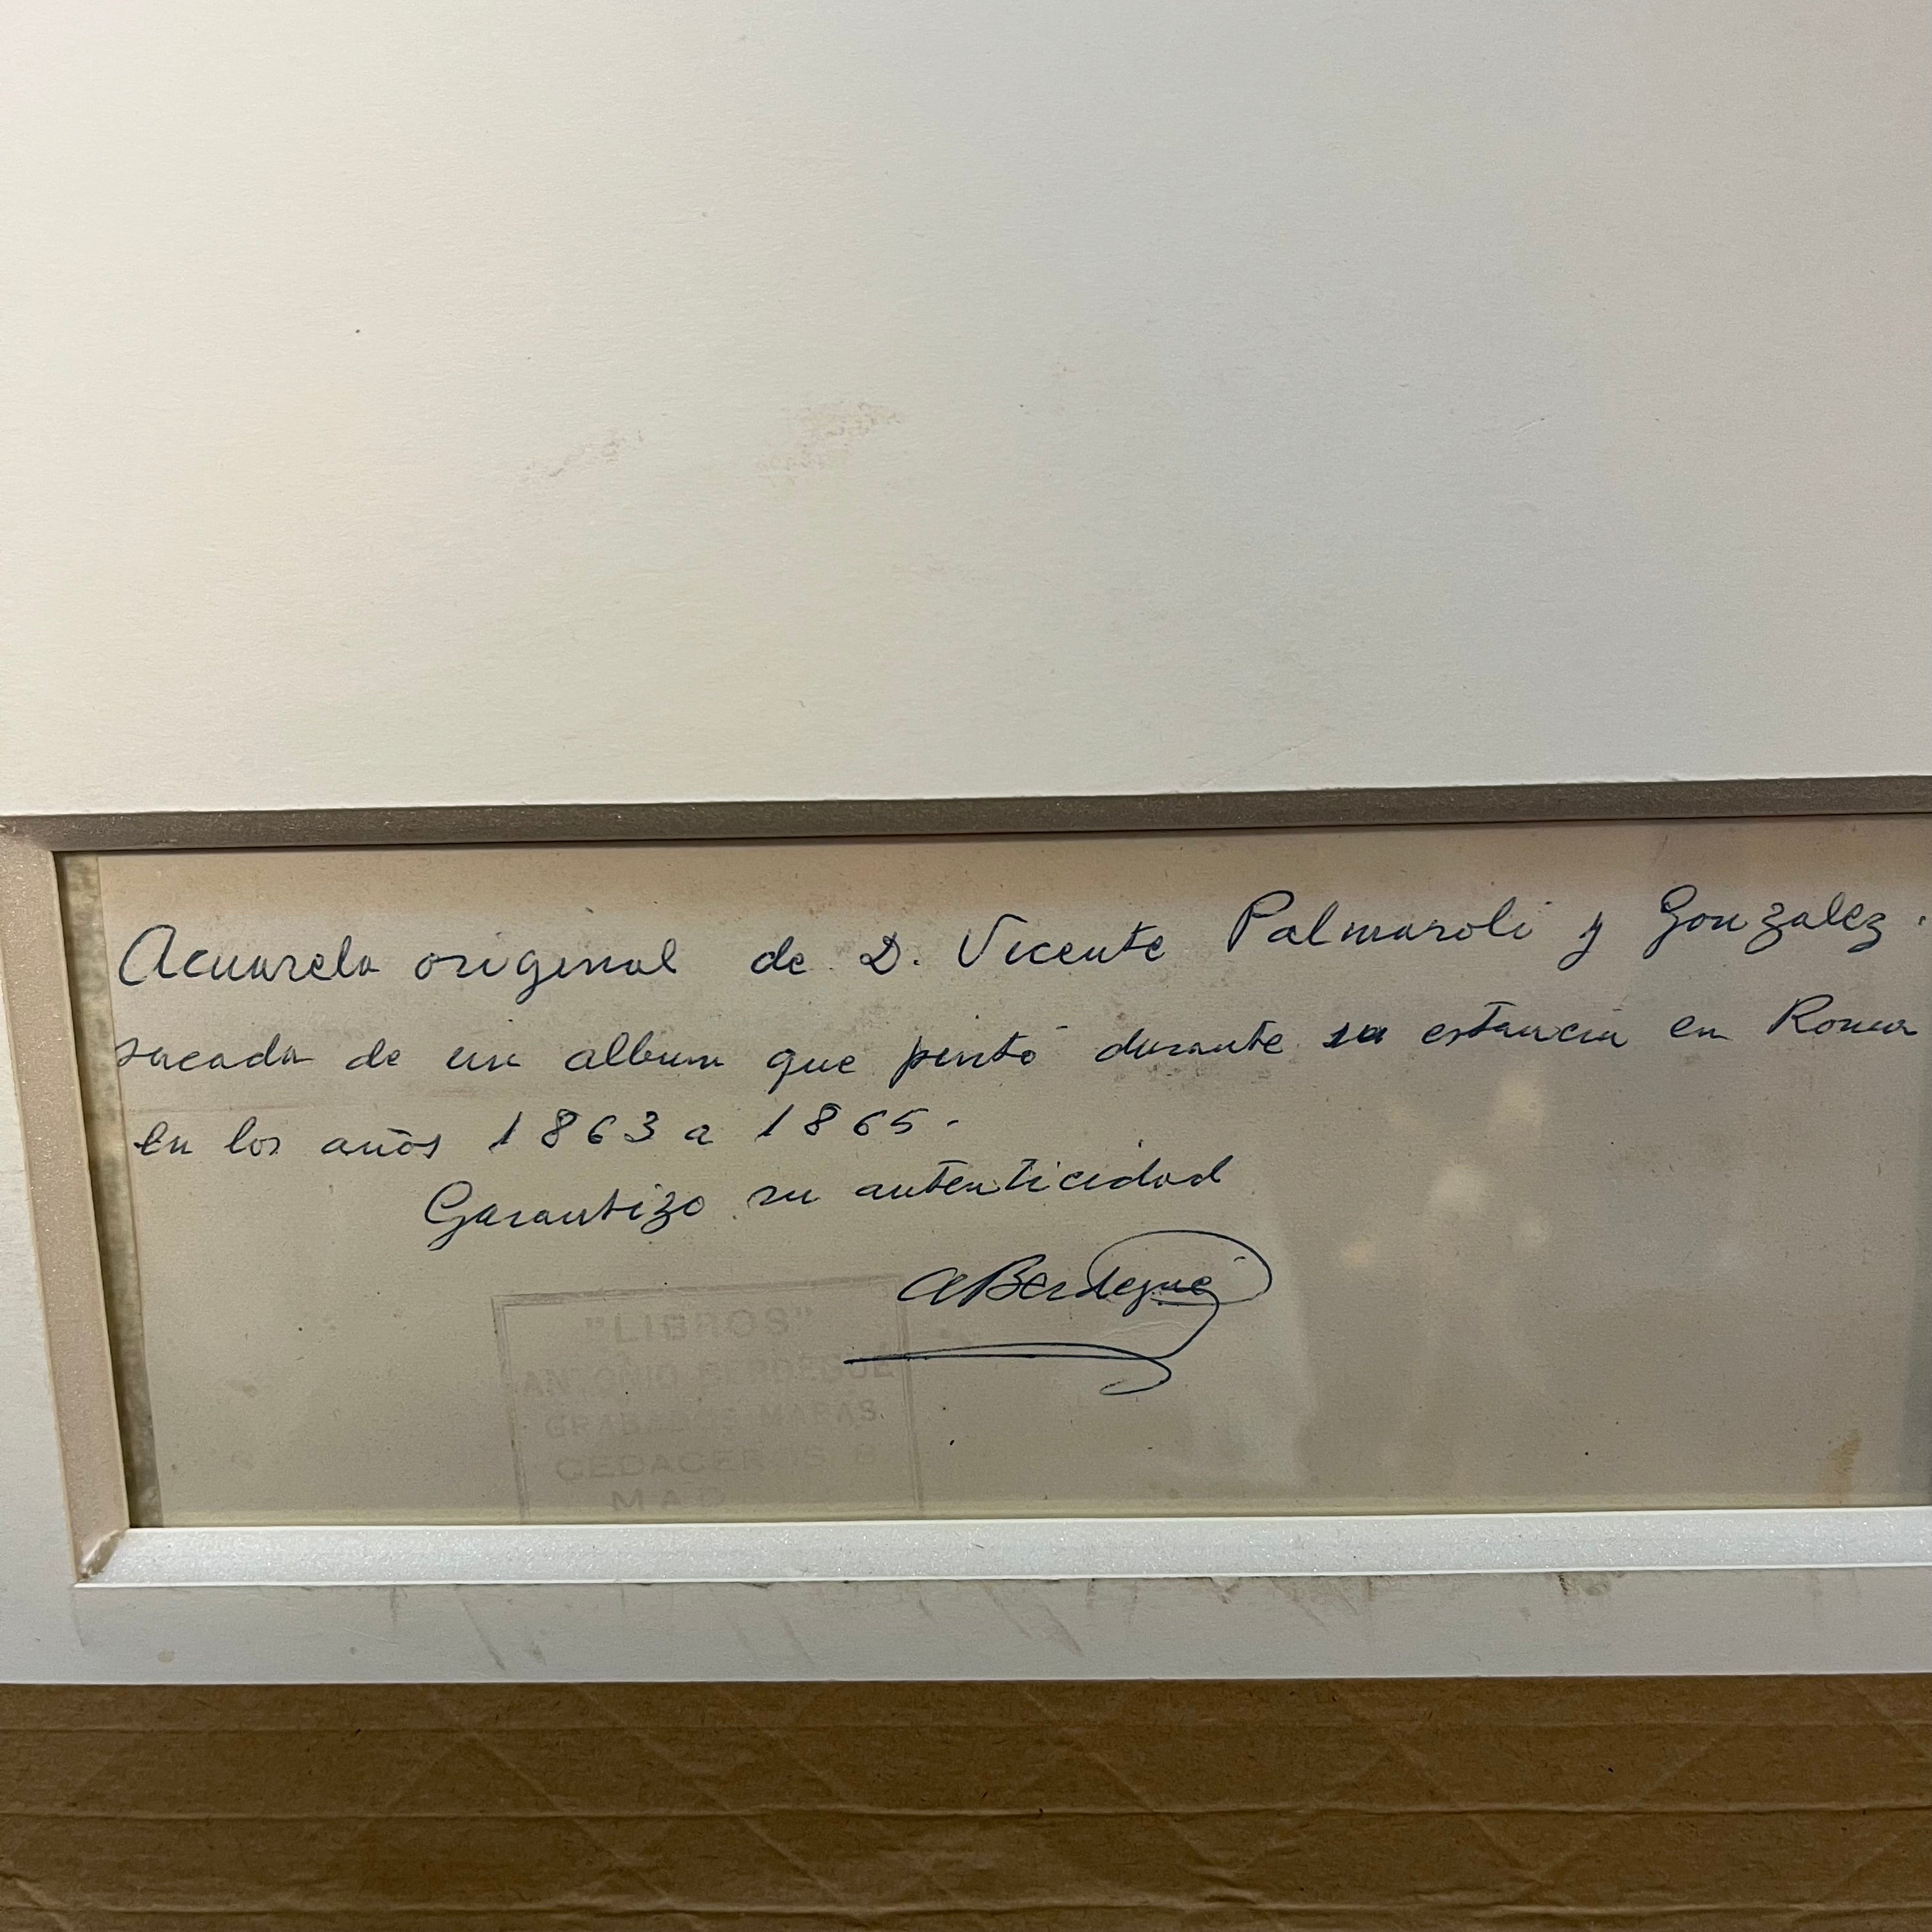 Acuarela original de D. Vicente Palmaroli y Gonzalez.
sacada de un album que pintó durante su estancia en Roma
en los años 1863 a 1865.-
Garantizo su autenticidad
ABerdegué
"LIBROS"
ANTONIO BERDEGUÉ
GRABADOS MAPAS
CEDACEROS 8
MAD